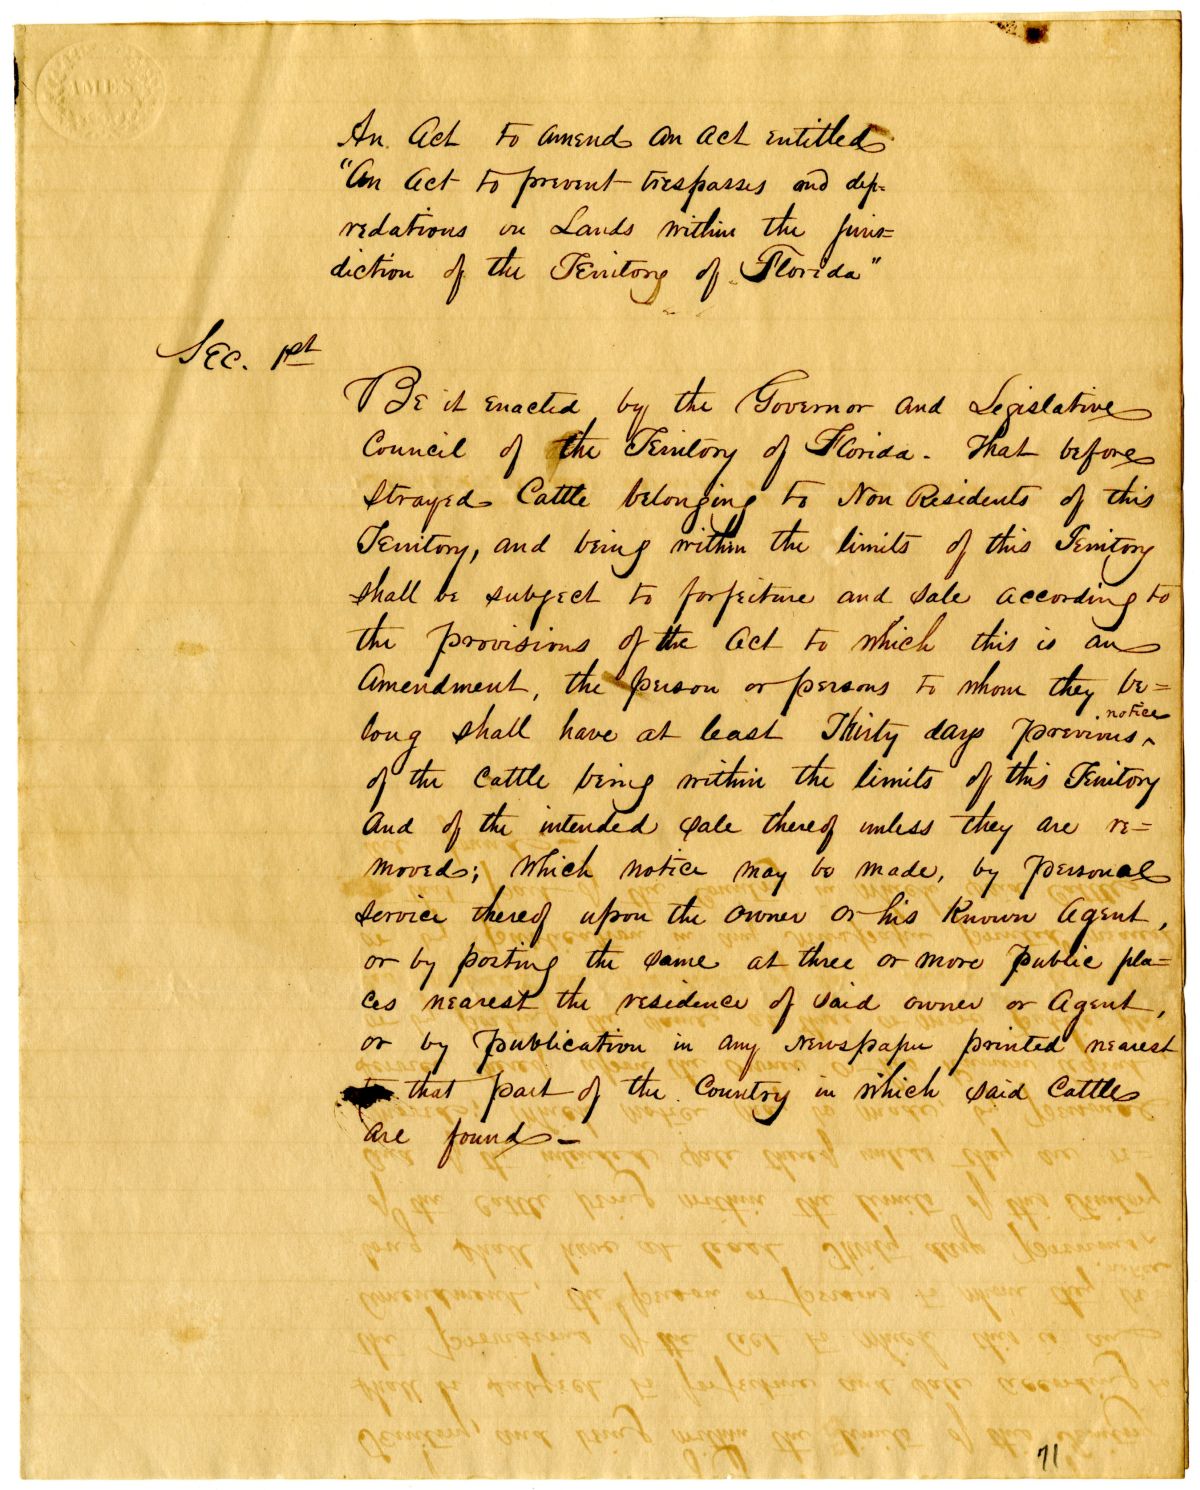 AMES
An Act to amend an act entitled
"An Act to prevent trespasses and dep=
redations on Lands within the juris=
diction of the Territory of Florida"
Sec. 1st
Be it enacted by the Governor and Legislative
Council of the Territory of Florida. That before
strayed Cattle belonging to Non Residents of this
Territory, and being within the limits of this Territory
shall be subject to forfeiture and sale according to
the provisions of the Act to which this is an
Amendment, the person or persons to whom they be=
notice
long shall have at least Thirty days previous ^
of the Cattle being within the limits of this Territory
And of the intended sale thereof unless they are re=
moved; which notice may be made, by personal
service thereof upon the owner or his Known Agent,
or by posting the same at three or more public pla=
ces nearest the residence of said owner or Agent,
or by publication in any Newspaper printed nearest
to that part of the Country in which said Cattle
are found —
71